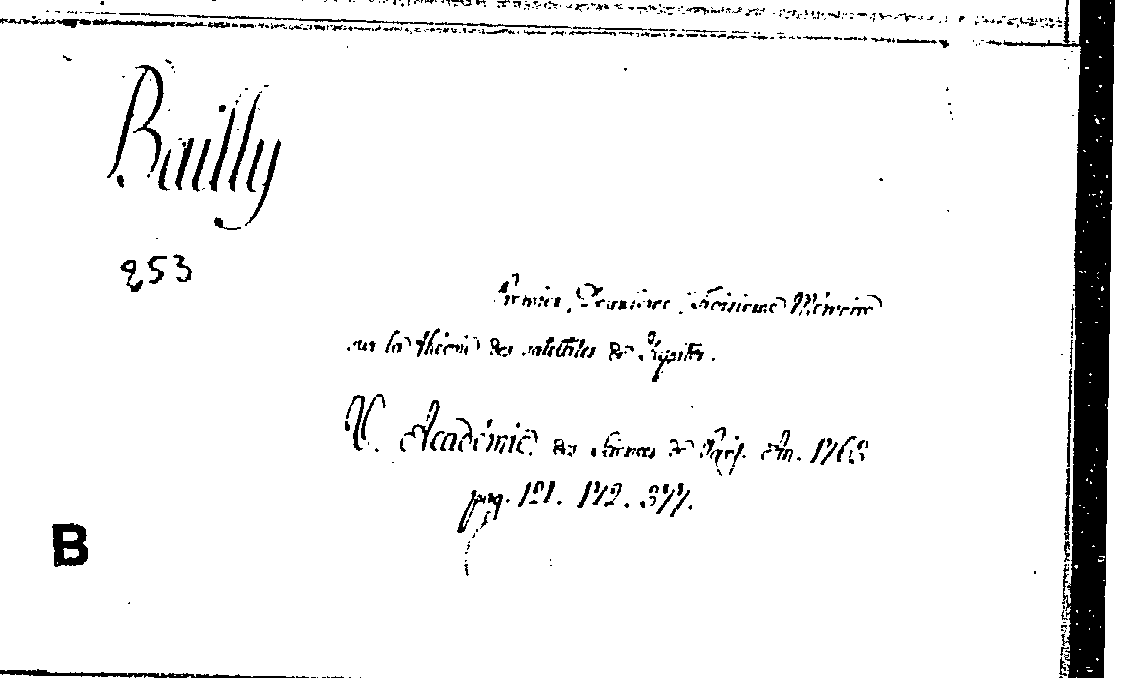 Bailly
253
Premier, Deuxième, Troisieme Mémoire
sur la théorie des satellites de Jupiter.
V. Académie des Sciences de Paris. An. 1763
pag. 121. 172. 377.
B